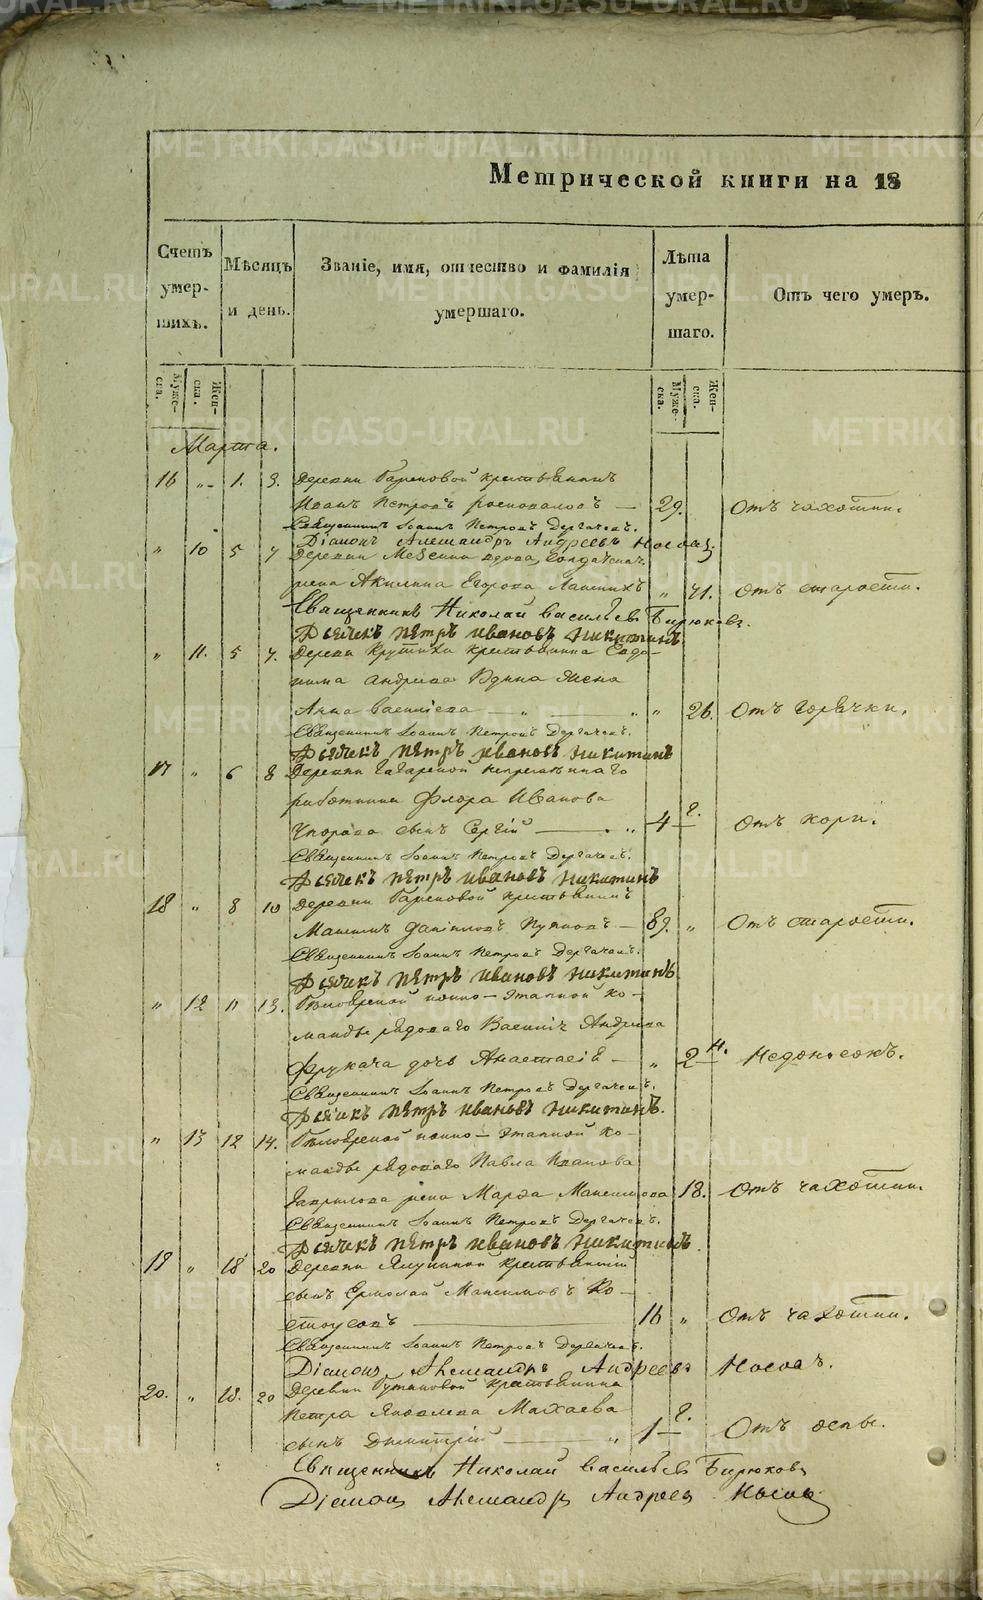 METRIKI.GASO-URAL.RU
Метрической книги на 18
Счетъ умер- шихъ.
Мѣсяцъ и день.
Званіе, имя, отчество и фамилія умершаго.
Лѣта умер- шаго.
Отъ чего умеръ.
Муже- ска.
Жен- ска.
Муже- ска.
Жен- ска.
Марта.
16 „ 1. 3. Деревни крестьянинъ
Иванъ Петровъ — 29. Отъ чахотки.
Священникъ Іоаннъ Петровъ Дергачевъ.
Діаконъ Александръ Андреевъ Носовъ
„ 10 5 7 Деревни вдова, солдатская
жена Акилина Егорова „ 71. Отъ старости.
Священникъ Николай Васильевъ Бирюковъ.
Дьячекъ Петръ Ивановъ Никитинъ
„ 11. 5 7. Деревни Крутихи крестьянина Евдо-
кима Андреева жена
Анна Васильева — „ — „ „ 26. Отъ горячки.
Священникъ Іоаннъ Петровъ Дергачевъ.
Дьячекъ Петръ Ивановъ Никитинъ
17 „ 6 8 Деревни Гагарской непремѣннаго
работника Флора Иванова
сынъ Сергій — „ 4 г. Отъ кори.
Священникъ Іоаннъ Петровъ Дергачевъ.
Дьячекъ Петръ Ивановъ Никитинъ
18 „ 8 10 Деревни крестьянинъ
Максимъ Даниловъ — 89. „ Отъ старости.
Священникъ Іоаннъ Петровъ Дергачевъ.
Дьячекъ Петръ Ивановъ Никитинъ
„ 12 11 13. Бѣлоярской конно-этапной ко-
манды рядоваго Андреева
дочь Анастасія — „ 2 н. Недоносокъ.
Священникъ Іоаннъ Петровъ Дергачевъ.
Дьячекъ Петръ Ивановъ Никитинъ.
„ 13 12 14. Бѣлоярской конно-этапной ко-
манды рядоваго Павла Иванова
Гаврилова жена Марѳа Максимова 18. Отъ чахотки.
Священникъ Іоаннъ Петровъ Дергачевъ.
Дьячекъ Петръ Ивановъ Никитинъ
19 „ 18 20 Деревни крестьянскій
сынъ Ермолай Максимовъ Ко-
стоусовъ — 16 „ Отъ чахотки.
Священникъ Іоаннъ Петровъ Дергачевъ.
Діаконъ Александръ Андреевъ Носовъ.
20. „ 18. 20 Деревни крестьянина
Петра Яковлева
сынъ Димитрій — „ 1 г. Отъ оспы.
Священникъ Николай Васильевъ Бирюковъ
Діаконъ Александръ Андреевъ Носовъ